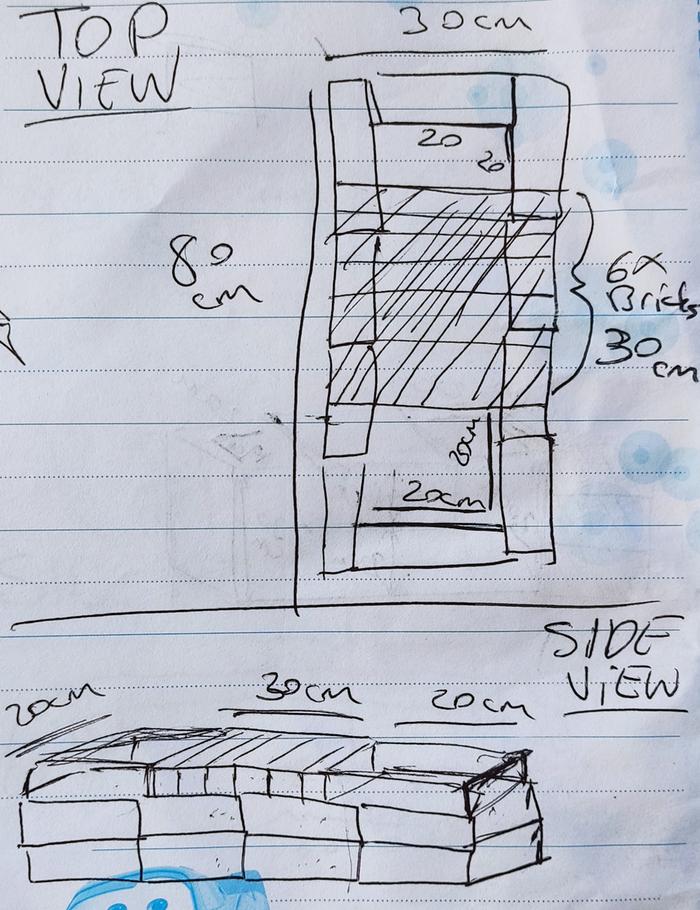 TOP
VIEW
30cm
20
20
80
cm
6x
Bricks
30
cm
20cm
20cm
SIDE
VIEW
20cm
30cm
20cm